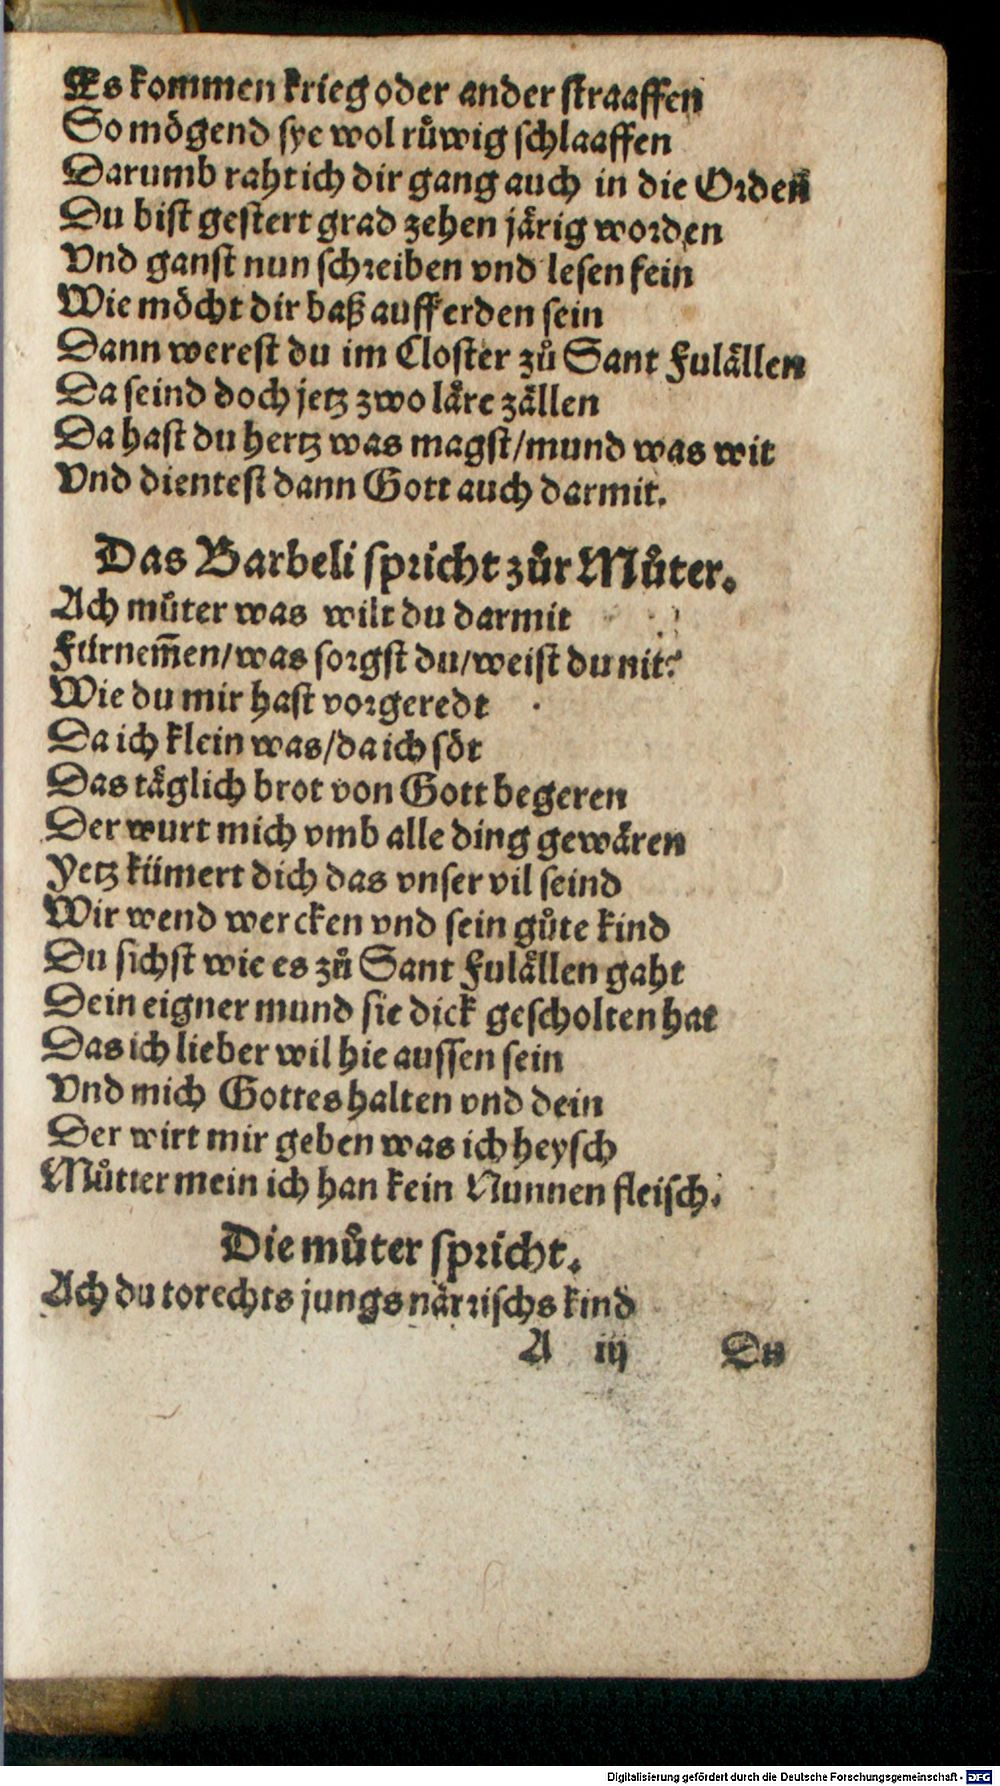 Es kommen krieg oder ander straaffen
So mögend sye wol růwig schlaaffen
Darumb raht ich dir gang auch in die Orden
Du bist gestert grad zehen järig worden
Vnd ganst nun schreiben vnd lesen fein
Wie möcht dir baß auff erden sein
Dann werest du im Closter zů Sant Fulällen
Da seind doch jetz zwo läre zällen
Da hast du hertz was magst/mund was wit
Vnd dientest dann Gott auch darmit.
Das Barbeli spricht zůr Můter.
Ach můter was wilt du darmit
Fürnem̃en/was sorgst du/weist du nit?
Wie du mir hast vorgeredt
Da ich klein was/da ich söt
Das täglich brot von Gott begeren
Der wurt mich vmb alle ding gewären
Yetz kümert dich das vnser vil seind
Wir wend wercken vnd sein gůte kind
Du sichst wie es zů Sant Fulällen gaht
Dein eigner mund sie dick gescholten hat
Das ich lieber wil hie aussen sein
Vnd mich Gottes halten vnd dein
Der wirt mir geben was ich heysch
Můtter mein ich han kein Nunnen fleisch.
Die můter spricht.
Ach du torechts jungs närrischs kind
A iij Du
Digitalisierung gefördert durch die Deutsche Forschungsgemeinschaft - DFG